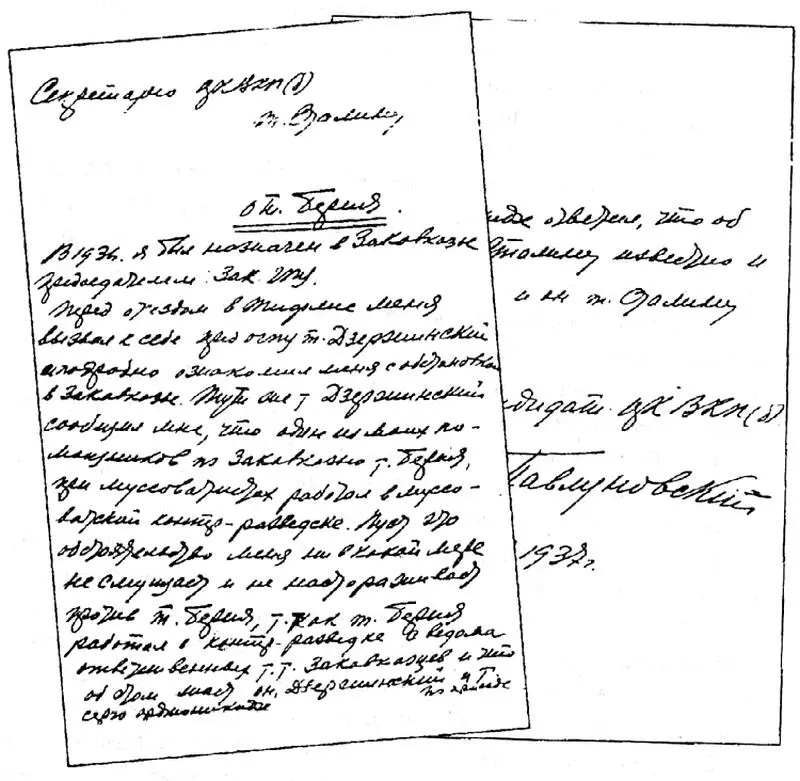 Секретарю ЦК ВКП(б)
т. Сталину
о т. Берия.
В 1926г. я был назначен в Закавказье
председателем Зак. ГПУ.
Перед отъездом в Тифлис меня
вызвал к себе пред ОГПУ т. Дзержинский
и подробно ознакомил меня с обстановкой
в Закавказье. Тут же т Дзержинский
сообщил мне, что один из моих по-
мощников по Закавказью т. Берия,
при муссаватистах работал в мусс-
ватской контр-разведке. Пусть это
обстоятельство меня ни в какой мере
не смущает и не настораживает
против т. Берия, т. как т. Берия
работал в контр-разведке с ведома
ответственных т.т. Закавказцев и что
об этом знает он, Дзержинский и т.
Серго Орджоникидзе
идзе ответил, что об
Сталину известно и
и он т. Сталину
ндидат ЦК ВКП(б)
Павлуновский
1937г.